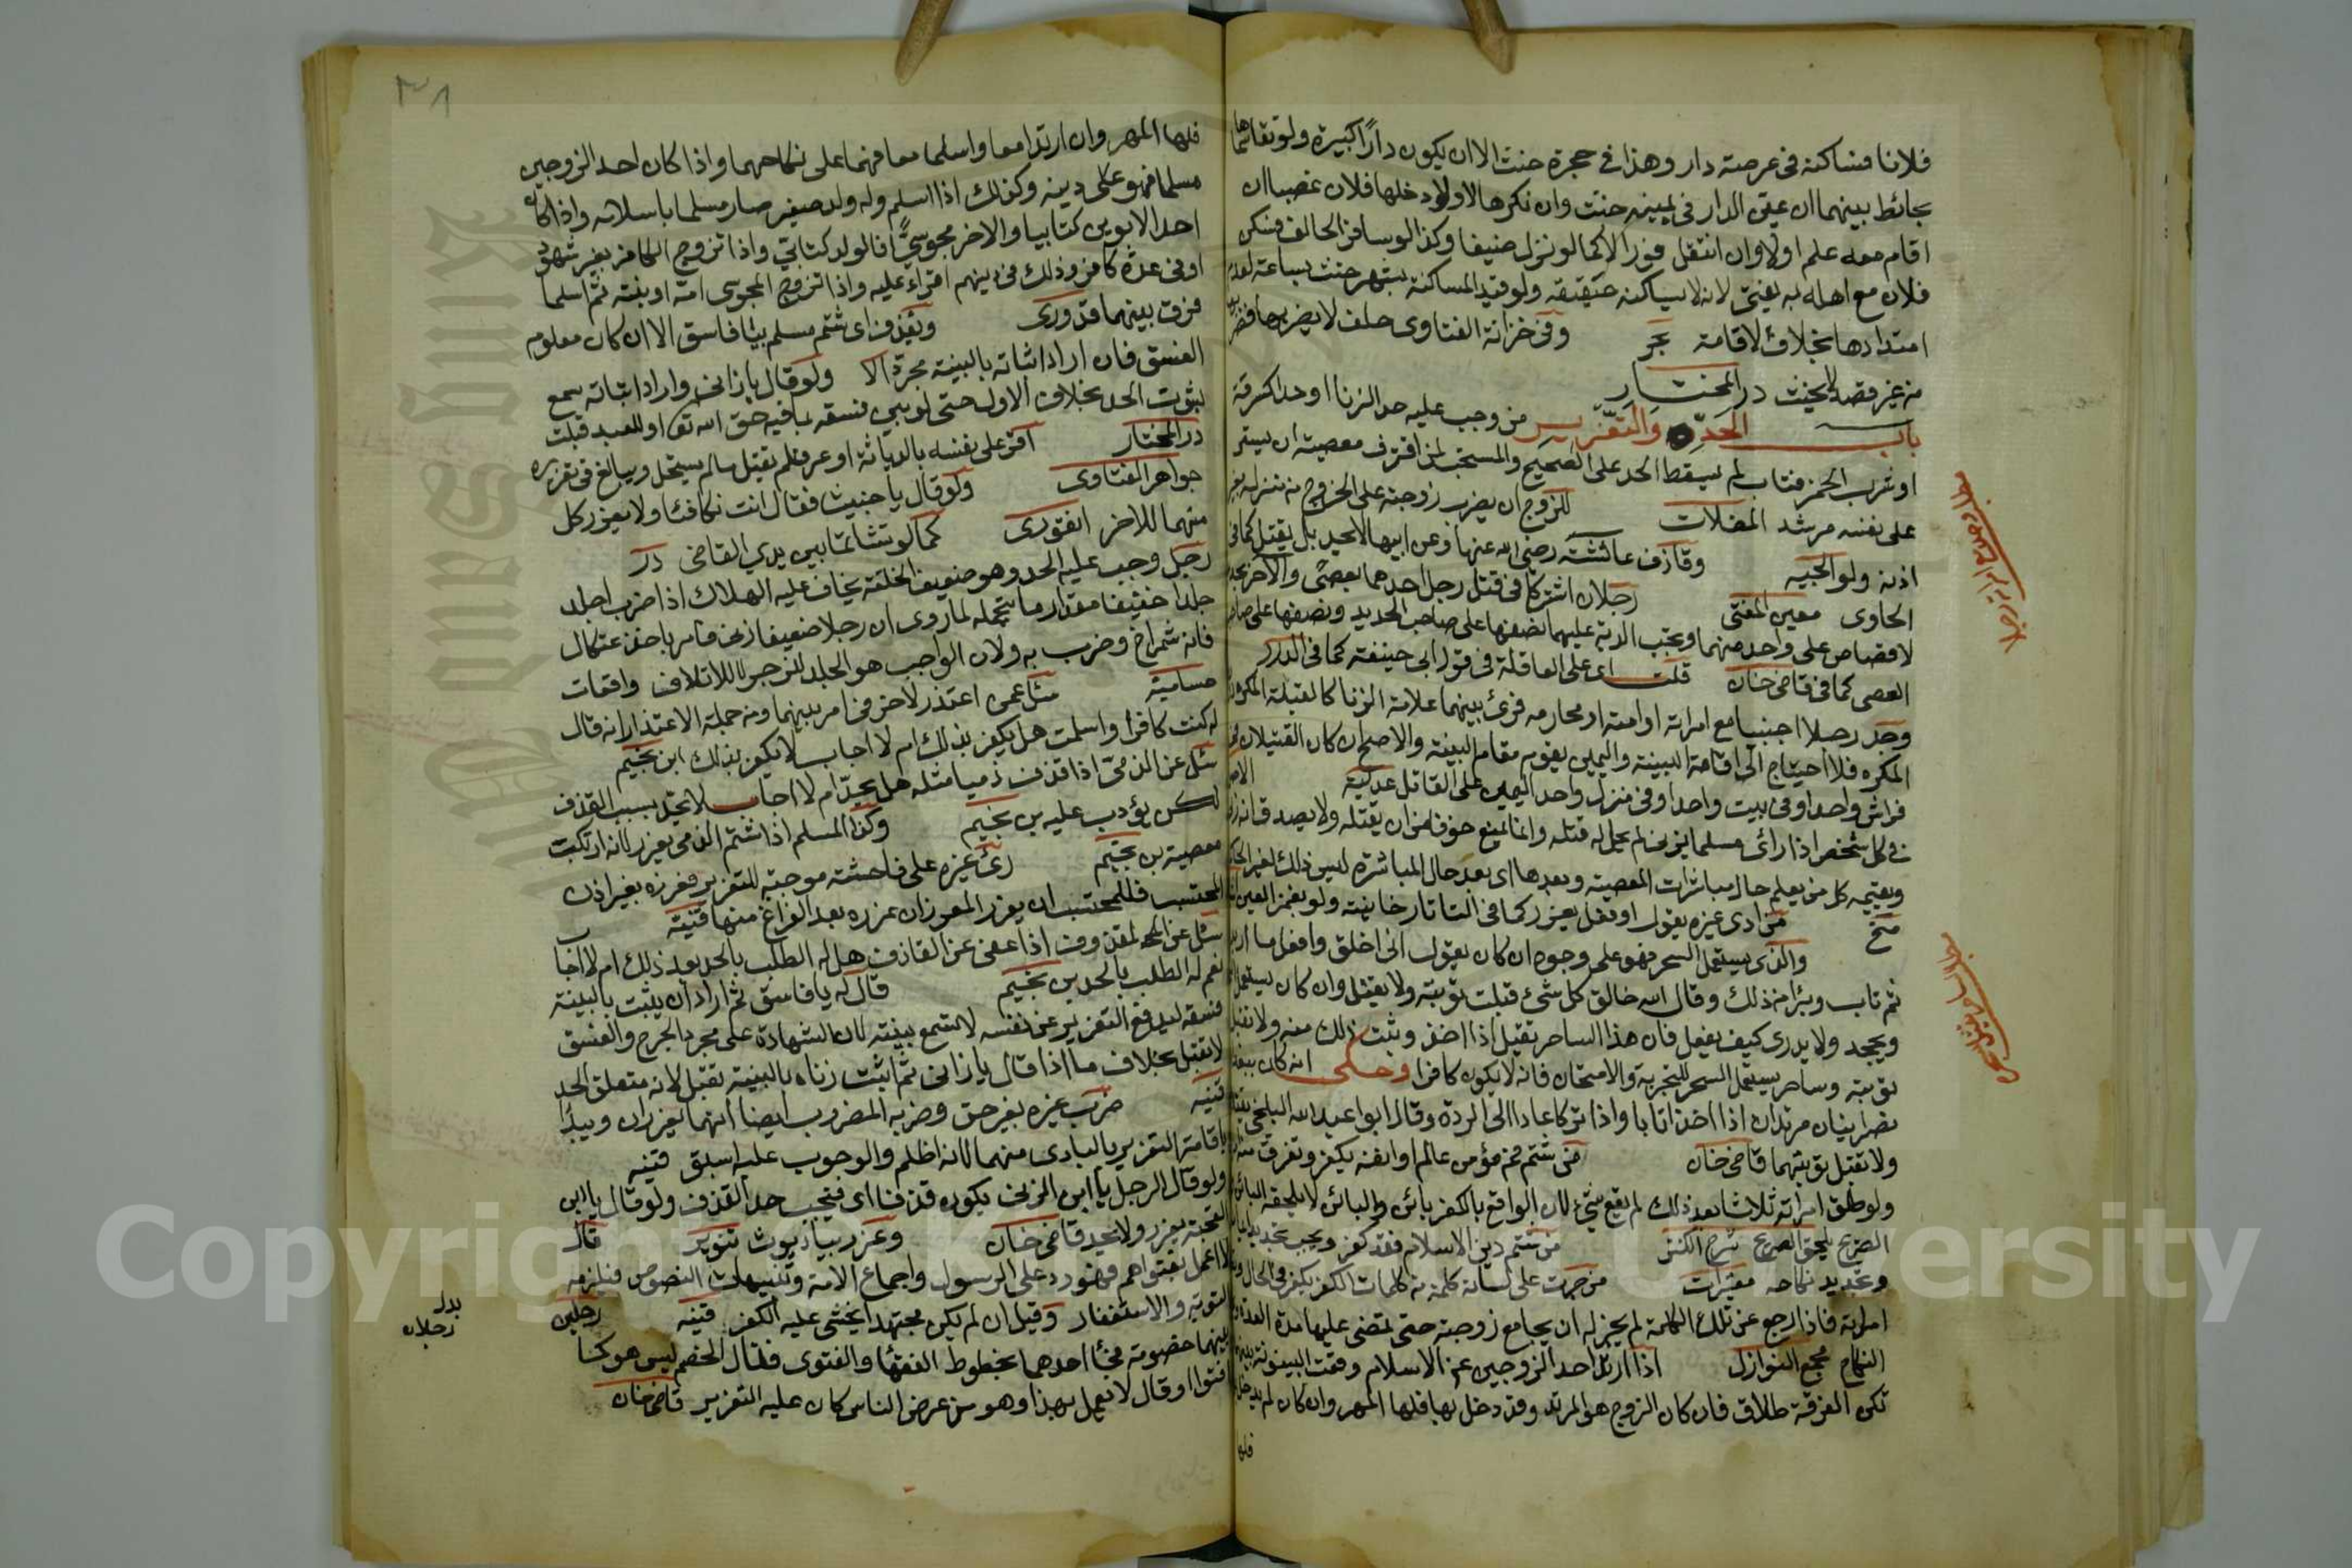 فلانا فساكنه في عرصة دار وهذا في حجرة حنث الا ان يكون دارًا كبيرة ولو تقاسماها
بحائط بينهما ان عين الدار في يمينه حنث وان نكرها لا ولو دخلها فلان غصبا ان
اقام معه علم اولا وان انتقل فورا لا كما لو نزل ضيفا وكذا لو سافر الحالف فسكن
فلان مع اهله به يفتى لانه لا يساكنه حقيقة ولو قيد المساكنة بشهر حنث بساعة لعدم
امتدادها بخلاف الاقامة بحر وفي خزانة الفتاوى حلف لا يضربها فضربها
من غير قصد لا يحنث در المختار
باب الحد والتعزير من وجب عليه حد الزنا او حد السرقة
او شرب الخمر فتاب لم يسقط الحد على الصحيح والمستحب لمن اقترف معصية ان يستر
على نفسه مرشد المضلات للزوج ان يضرب زوجته على الخروج من منزله بغير
اذنه ولوالجيه وقاذف عائشة رضي الله عنها وعن ابيها لا يحد بل يقتل كما في
الحاوى معين المفتى رجلان اشتركا في قتل رجل احدهما بعصًى والآخر بحديد
لا قصاص على واحد منهما وتجب الدية عليهما نصفها على صاحب الحديد ونصفها على صاحب
العصى كما في قاضى خان قلت اى على العاقلة في قول ابى حنيفة كما في الدرر
وجد رجلا اجنبيا مع امراته او امته او محارمه فرئ بينهما علامة الزنا كالقبلة
المكره فلا احتياج الى اقامة البينة واليمين يقوم مقام البينة والاصح ان كان القتيلان في
فراش واحد او في بيت واحد او في منزل واحد اليمين على القاتل عدلية
في كل شخص اذا رأى مسلما يزنى لم يحل له قتله وانما يمنع خوفا من ان يقتله ولا يصدق انه زنى
ويقيمه كل من يعلم حال مباشرات المعصية وبعدها اى بعد حال المباشرة ليس ذلك لغير الحاكم
منح من اذى غيره بقول او فعل يعزر كما في التاتارخانية ولو بغمز العين
والذى يستعمل السحر فهو على وجوه ان كان يقول انى اخلق وافعل ما اريد
ثم تاب وتبرأ من ذلك وقال الله خالق كل شئ قبلت توبته ولا يقتل وان كان يستعمل
ويجحد ولا يدرى كيف يفعل فان هذا الساحر يقتل اذا اخذ وثبت ذلك منه ولا تقبل
توبته وساحر يستعمل السحر للتجربة والامتحان فانه لا يكون كافرا وحكى انه كان
نصرانيان مرتدان اذا اخذا تابا واذا تركا عادا الى الردة وقال ابو عبد الله البلخى
ولا تقبل توبتهما قاضى خان من شتم فم مؤمن عالم او انفه يكفر وتفرق منه
ولو طلق امراته ثلاثا بعد ذلك لم يقع شئ لان الواقع بالكفر بائن والبائن لا يلحقه البائن
الصريح يلحق الصريح شرح الكنز من شتم دين الاسلام فقد كفر ويجب تجديد
وتجديد نكاحه معتبرات من جرت على لسانه كلمة من كلمات الكفر يكفر في الحال
امراته فاذا رجع عن تلك الكلمة لم يجز له ان يجامع زوجته حتى تمضى عليها مدة
النكاح مجمع النوازل اذا ارتد احد الزوجين عن الاسلام وقعت البينونة
تكن الفرقة طلاق فان كان الزوج هو المرتد وقد دخل بها فلها المهر وان كان لم يدخل
فلها
٣٨
فلها المهر وان ارتدا معا واسلما معا فهما على نكاحهما واذا كان احد الزوجين
مسلما فهو على دينه وكذلك اذا اسلم وله ولد صغير صار مسلما باسلامه واذا كان
احد الابوين كتابيا والاخر مجوسيًّا فالولد كتابي واذا تزوج الكافر بغير شهود
او في عدة كافر وذلك في دينهم اقراء عليه واذا تزوج المجوسى امه او بنته ثم اسلما
فرق بينهما قدورى ويقذف اى شتم مسلم بيا فاسق الا ان كان معلوم
الفسق فان اراد اثباته بالبينة مجردة لا ولو قال يا زانى واراد اثباته يسمع
لثبوت الحد بخلاف الاول حتى لو بين فسقه بما فيه حق الله تعا او للعبد قبلت
در المختار اقر على نفسه بالدياثة او عرف لم يقتل ما لم يستحل ويبالغ في تعزيره
جواهر الفتاوى ولو قال يا خبيث فقال انت تكافئا ولا يعزر كل
منهما للاخر انقروى كما لو تشاتما بين يدي القاضى در
رجل وجب عليه الحد وهو ضعيف الخلقة يخاف عليه الهلاك اذا ضرب اجلد
جلدا خفيفا مقدار ما يتحمله لما روى ان رجلا ضعيفا زنى فامر باخذ عثكال
فانه شمراخ وضرب به ولان الواجب هو الجلد للزجر لا للاتلاف واقعات
حسامية سئل عمن اعتذر لاخر في امر بينهما ومن جملة الاعتذار انه قال
له كنت كافرا واسلمت هل يكفر بذلك ام لا اجاب لا يكفر بذلك ابن نجيم
سئل عن الذمى اذا قذف ذميا مثله هل يحد ام لا اجاب لا يحد بسبب القذف
لكن يؤدب عليه بن نجيم وكذا المسلم اذا شتم الذمى يعزر لانه ارتكبت
معصية بن نجيم رئ غيره على فاحشة موجبة للتعزير فعزره بغير اذن
المحتسب فللمحتسب ان يعزر المعزر ان عزره بعد الفراغ منها قنية
سئل عن المقذوف اذا عفى عن القاذف هل له الطلب بالحد بعد ذلك ام لا اجاب
نعم له الطلب بالحد بن نجيم قال له يا فاسق ثم اراد ان يثبت بالبينة
فسقه ليدفع التعزير عن نفسه لا تسمع بينته لان الشهادة على مجرد الجرح والفسق
لا تقبل بخلاف ما اذا قال يا زانى ثم اثبت زناه بالبينة تقبل لانه متعلق الحد
قنيه ضرب غيره بغير حق وضربه المضروب ايضا انهما يعزران ويبدأ
باقامة التعزير بالبادى منهما لانه اظلم والوجوب عليه اسبق قنيه
ولو قال الرجل يا ابن الزنى يكون قذفا اى فيجب حد القذف ولو قال يا ابن
القحبة يعزر ولا يحد قاضى خان وعزر بيا ديوث تنوير قال
لا اعمل بفتواهم فهو رد على الرسول واجماع الامة وتنبيهات النصوص فيلزمه
التوبة والاستغفار وقيل ان لم يكن مجتهدا يخشى عليه الكفر قنيه رجلين
بينهما خصومة فجأ احدهما بخطوط الفقها والفتوى فقال الخصم ليس هو كما
افتوا او قال لا نعمل بهذا وهو من عرض الناس كان عليه التعزير قاضى خان
بدل
رجلان
Copyright © King Saud University